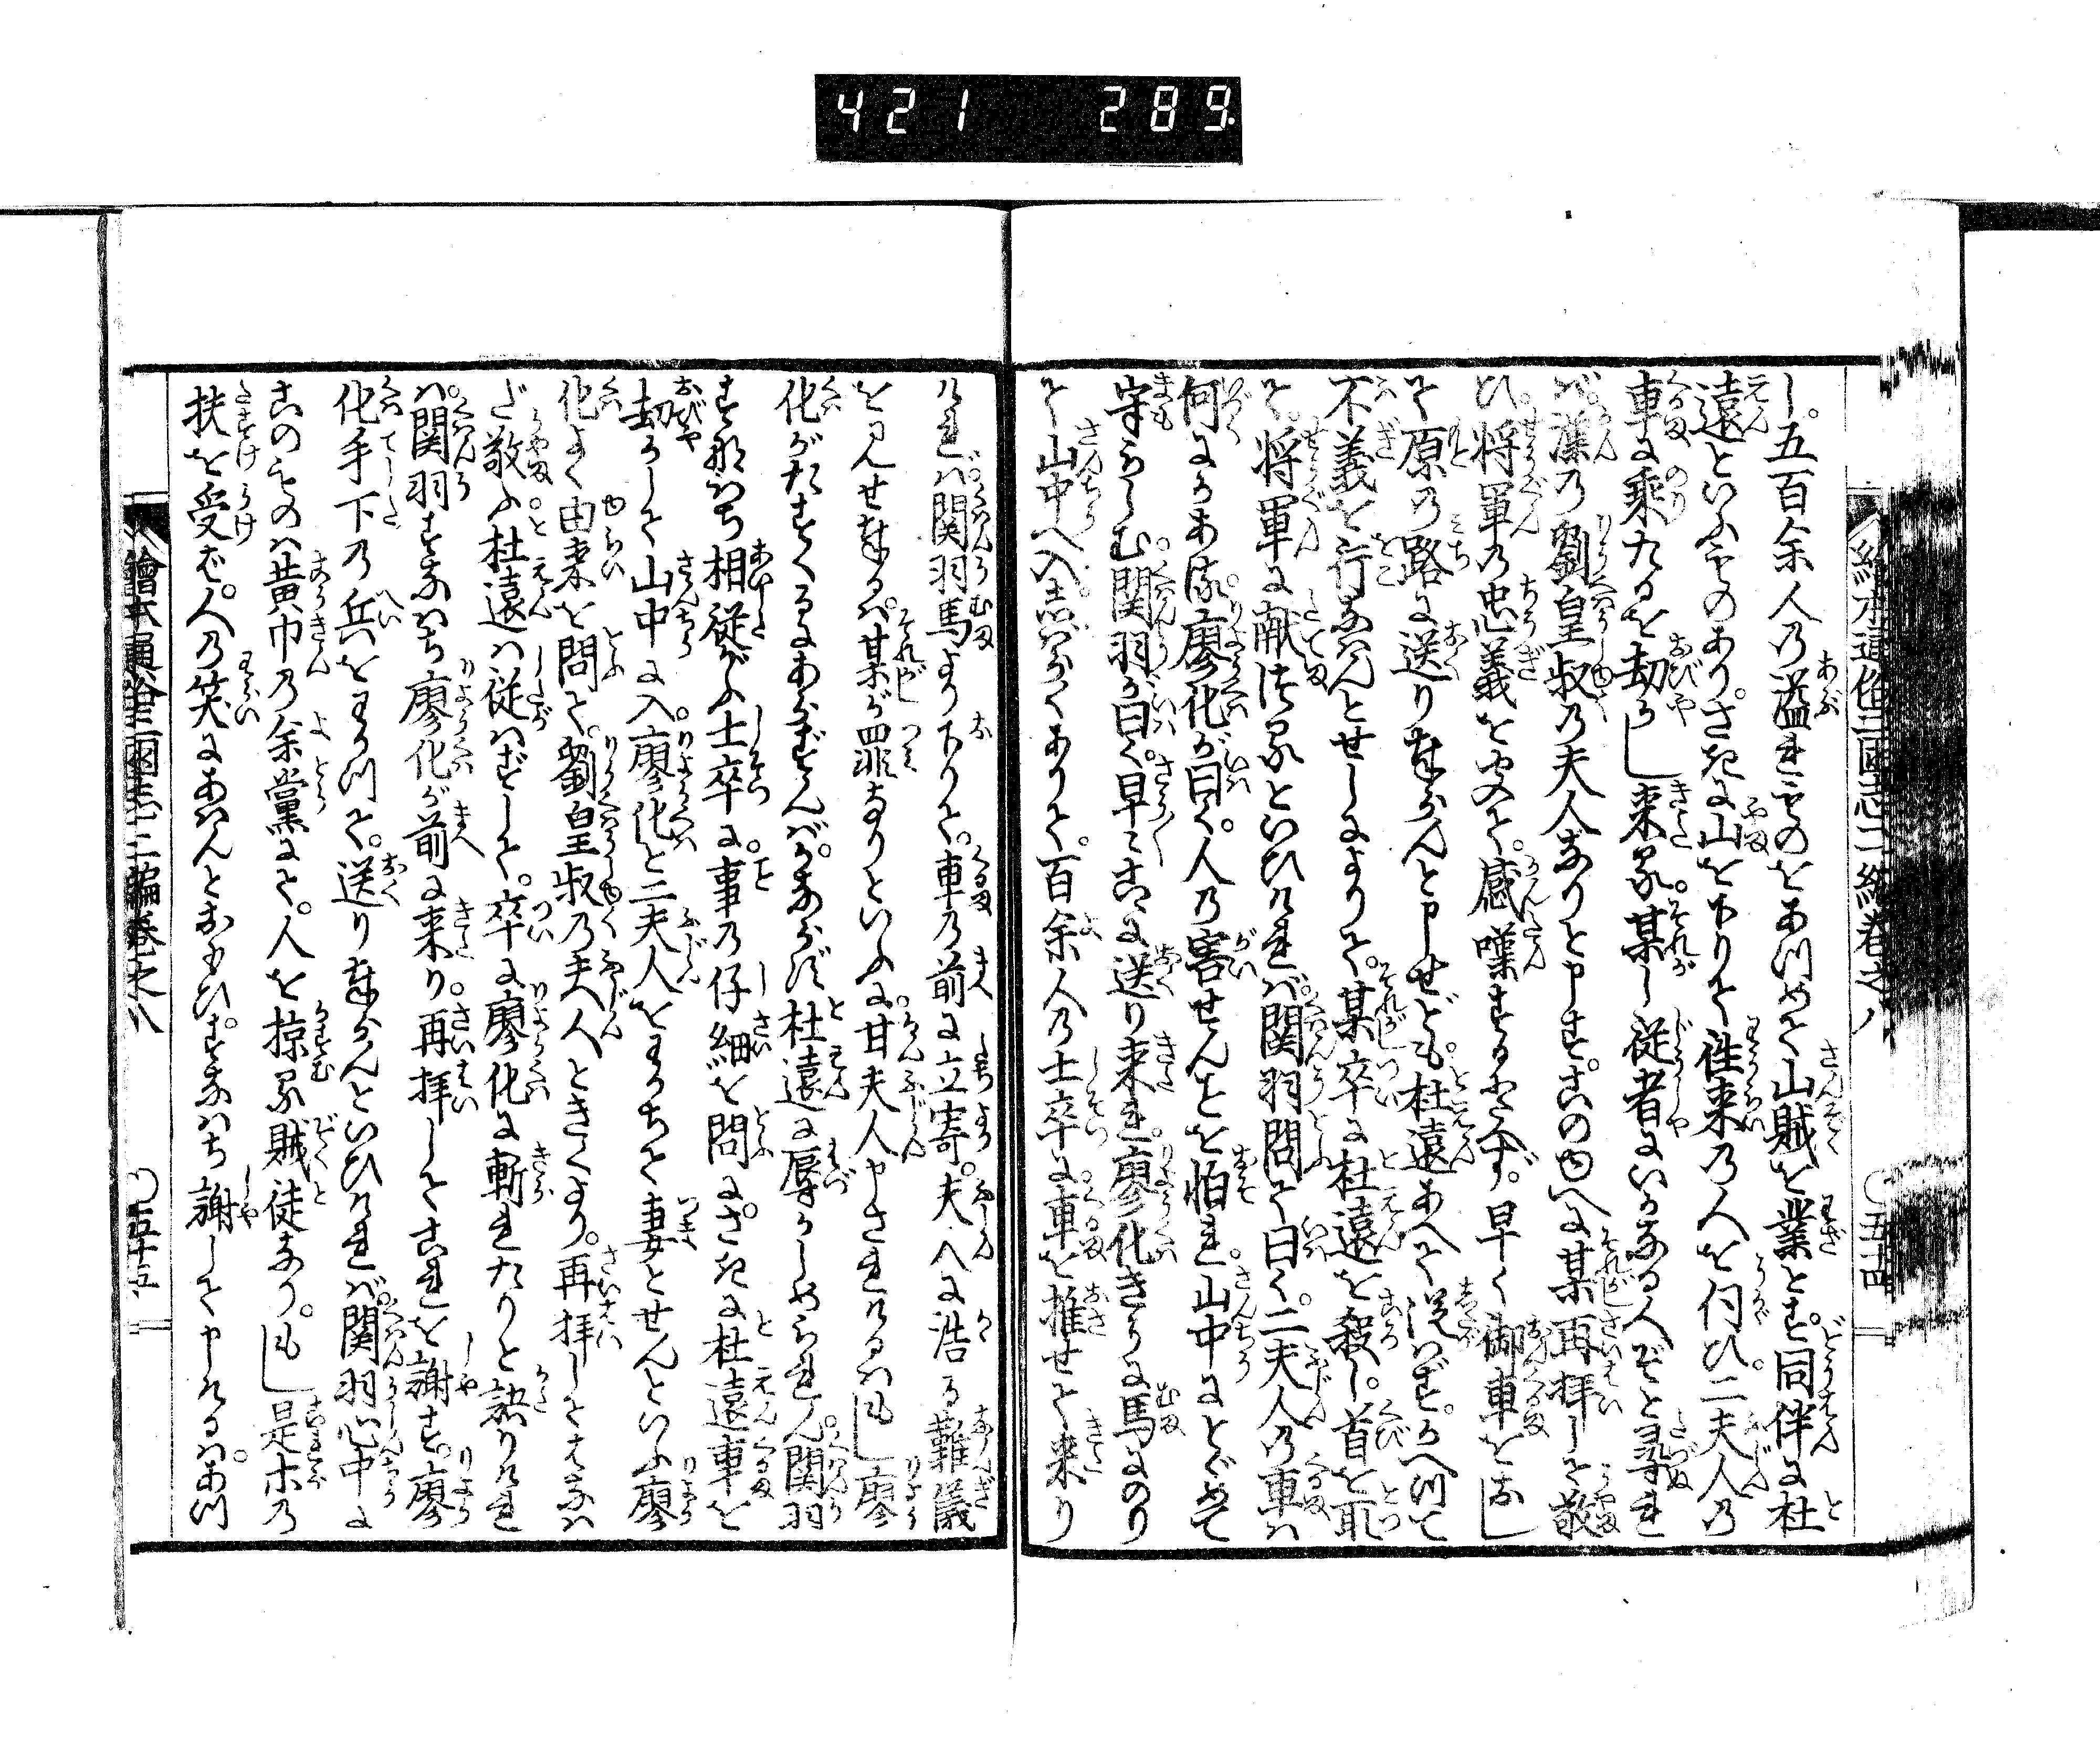 421 289
絵本通俗三國志二編巻之八 ○五十四
し。五百余人乃溢れものをあつめて山賊を業とす。同伴に杜
遠といふものあり。さきに山を下りて往来の人を伺ひ。二夫人の
車に乗たるを劫かし来る。某し従者にいかなる人ぞと尋れ
ば。漢乃劉皇叔乃夫人なりと申す。このゆへに某再拝して敬
ひ。将軍乃忠義を聞て。感嘆するにたへず。早く御車をなし
て原乃路に送り奉らんと申せども。杜遠あへて従はず。かへつて
不義を行なはんとせしによりて。某卒に杜遠を殺し。首を取
て。将軍に献つるといひければ。関羽問て曰く。二夫人乃車は
何にかある。廖化が曰く。人乃害せんことを怕れ。山中にとゞめて
守らしむ。関羽が曰く。早々こゝに送り来れ。廖化きうに馬にのり
て山中へ入。しばらくありて。百余人乃士卒に車を推せて来り
ければ。関羽馬より下りて。車乃前に立寄。夫人に浩る難儀
を見せ奉るは。某が罪なりといふに。甘夫人申されけるは。もし廖
化がたすくるにあらずんば。かならず杜遠に辱かしめられん。関羽
すなはち相従がふ士卒に。事乃仔細を問に。さきに杜遠車を
劫かして山中に入。廖化と二夫人をわかちて妻とせんといふ。廖
化よく由来を問て。劉皇叔乃夫人ときくより。再拝してはなは
だ敬ふ。杜遠は従はずして。卒に廖化に斬れたりと訣りけれ
ば。関羽すなはち廖化が前に来り。再拝してこれを謝す。廖
化手下乃兵をわかつて。送り奉らんといひければ。関羽心中に
このものは黄巾乃余黨にて。人を掠る賊徒なり。もし是木乃
扶を受ば。人乃笑にあはんとおもひ。すなはち謝して申けるは。あつ
繪本通俗三國志二編巻之八 ○五十五